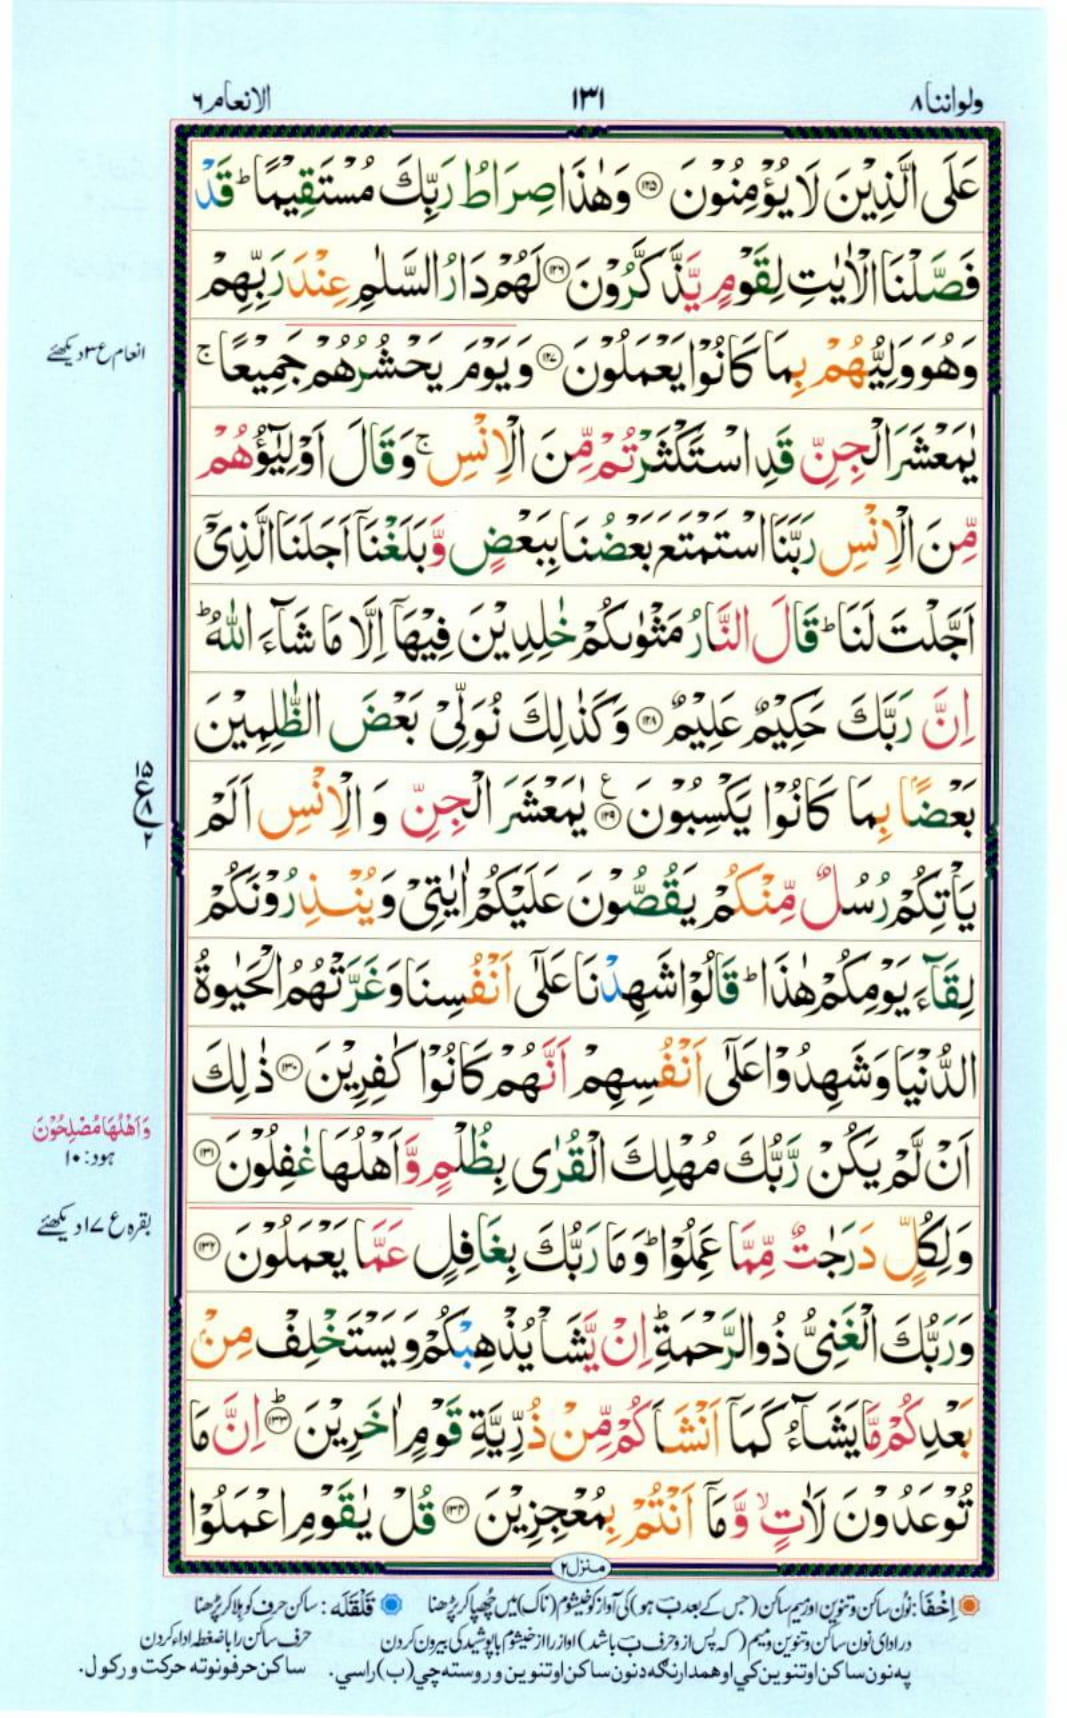 ولواننا ۸ ۱۳۱ الانعام ۶
عَلَى الَّذِيْنَ لَا يُؤْمِنُوْنَ ۝۱۲۵ وَهٰذَا صِرَاطُ رَبِّكَ مُسْتَقِيْمًا ؕ قَدْ
فَصَّلْنَا الْاٰيٰتِ لِقَوْمٍ يَّذَّكَّرُوْنَ ۝۱۲۶ لَهُمْ دَارُ السَّلٰمِ عِنْدَ رَبِّهِمْ
وَهُوَ وَلِيُّهُمْ بِمَا كَانُوْا يَعْمَلُوْنَ ۝۱۲۷ وَيَوْمَ يَحْشُرُهُمْ جَمِيْعًا ۚ
انعام ع ۳ دیکھئے
يٰمَعْشَرَ الْجِنِّ قَدِ اسْتَكْثَرْتُمْ مِّنَ الْاِنْسِ ۚ وَقَالَ اَوْلِيٰٓؤُهُمْ
مِّنَ الْاِنْسِ رَبَّنَا اسْتَمْتَعَ بَعْضُنَا بِبَعْضٍ وَّبَلَغْنَاۤ اَجَلَنَا الَّذِيْۤ
اَجَّلْتَ لَنَا ؕ قَالَ النَّارُ مَثْوٰىكُمْ خٰلِدِيْنَ فِيْهَاۤ اِلَّا مَا شَآءَ اللّٰهُ ؕ
اِنَّ رَبَّكَ حَكِيْمٌ عَلِيْمٌ ۝۱۲۸ وَكَذٰلِكَ نُوَلِّيْ بَعْضَ الظّٰلِمِيْنَ
بَعْضًۢا بِمَا كَانُوْا يَكْسِبُوْنَ ۝۱۲۹ ع يٰمَعْشَرَ الْجِنِّ وَالْاِنْسِ اَلَمْ
۱۵
ع ۸
۲
يَاْتِكُمْ رُسُلٌ مِّنْكُمْ يَقُصُّوْنَ عَلَيْكُمْ اٰيٰتِيْ وَيُنْذِرُوْنَكُمْ
لِقَآءَ يَوْمِكُمْ هٰذَا ؕ قَالُوْا شَهِدْنَا عَلٰۤى اَنْفُسِنَا وَغَرَّتْهُمُ الْحَيٰوةُ
الدُّنْيَا وَشَهِدُوْا عَلٰۤى اَنْفُسِهِمْ اَنَّهُمْ كَانُوْا كٰفِرِيْنَ ۝۱۳۰ ذٰلِكَ
اَنْ لَّمْ يَكُنْ رَّبُّكَ مُهْلِكَ الْقُرٰى بِظُلْمٍ وَّاَهْلُهَا غٰفِلُوْنَ ۝۱۳۱
وَاَهْلُهَا مُصْلِحُوْنَ
ہود: ۱۰
وَلِكُلٍّ دَرَجٰتٌ مِّمَّا عَمِلُوْا ؕ وَمَا رَبُّكَ بِغَافِلٍ عَمَّا يَعْمَلُوْنَ ۝۱۳۲
بقرہ ع ۱۷ دیکھئے
وَرَبُّكَ الْغَنِيُّ ذُو الرَّحْمَةِ ؕ اِنْ يَّشَاْ يُذْهِبْكُمْ وَيَسْتَخْلِفْ مِنْۢ
بَعْدِكُمْ مَّا يَشَآءُ كَمَاۤ اَنْشَاَكُمْ مِّنْ ذُرِّيَّةِ قَوْمٍ اٰخَرِيْنَ ۝۱۳۳ ؕ اِنَّ مَا
تُوْعَدُوْنَ لَاٰتٍ ۙ وَّمَاۤ اَنْتُمْ بِمُعْجِزِيْنَ ۝۱۳۴ قُلْ يٰقَوْمِ اعْمَلُوْا
منزل ۲
اِخْفَا: نون ساکن و تنوین اور میم ساکن (جس کے بعد ب ہو) کی آواز کو خیشوم (ناک) میں چھپا کر پڑھنا قَلْقَلَه: ساکن حرف کو ہلا کر پڑھنا
در ادای نون ساکن و تنوین و میم (که پس از و حرف ب باشد) اواز را از خیشوم با پوشیدگی بیرون کردن حرف ساکن را با ضغطه اداء کردن
په نون ساکن او تنوین کي او همدارنګه د نون ساکن او تنوین وروسته چي (ب) راسي. ساکن حرفونو ته حرکت ورکول.